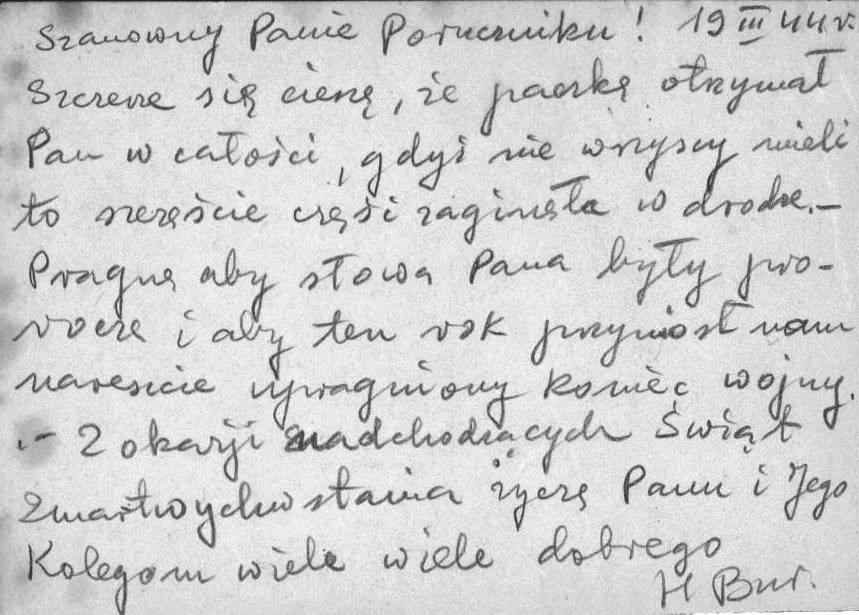 Szanowny Panie Poruczniku! 19 III 44 r.
Szczerze się cieszę, że paczkę otrzymał
Pan w całości, gdyż nie wszyscy mieli
to szczęście część zaginęła w drodze.-
Pragnę aby słowa Pana były pro-
rocze i aby ten rok przyniósł nam
nareszcie upragniony koniec wojny.
.- Z okazji nadchodzących Świąt
Zmartwychwstania życzę Panu i Jego
Kolegom wiele wiele dobrego
H Bur.